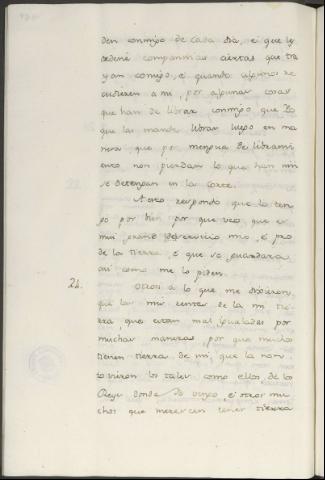 den conmigo de cada dia, é que ly
ordené compannias ciertas que tra
yan comigo, é quando algunos re
cudieren a mi, por algunas cosas
que han de librar conmigo que Yo
que las mande librar luego en ma
nera que por mengua de librami
ento non pierdan lo que han nin
se detengan en la corte.
A esto respondo que lo ten
go por bien por que veo que es
mui grand deservicio mio, é pro
de la tierra, é que se guardara
asi como me lo piden.
24. Otrosi a lo que me dixieron,
que las mis gentes de la mi tie
rra, que estan mal igualadas por
muchas maneras, por que muchos
tienen tierra de mi, que la non
tovieron los tales como ellos de los
Reyes donde Yo vengo, é otros mu
chos que merescen tener tierra